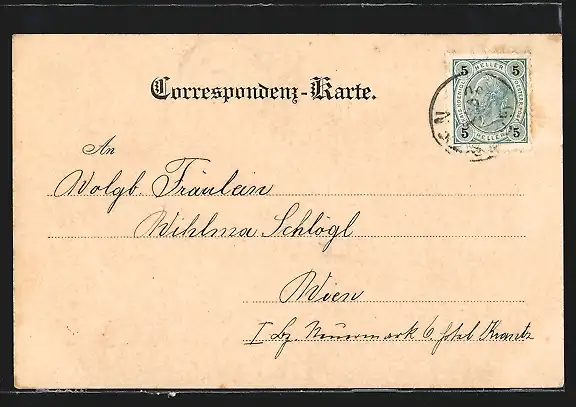 Correspondenz-Karte.
5 HELLER 5
5 HELLER 5
An
Wolgb. Fräulein
Wihlma Schlögl
Wien
I bz. Neuermark 6 Hotel Krantz